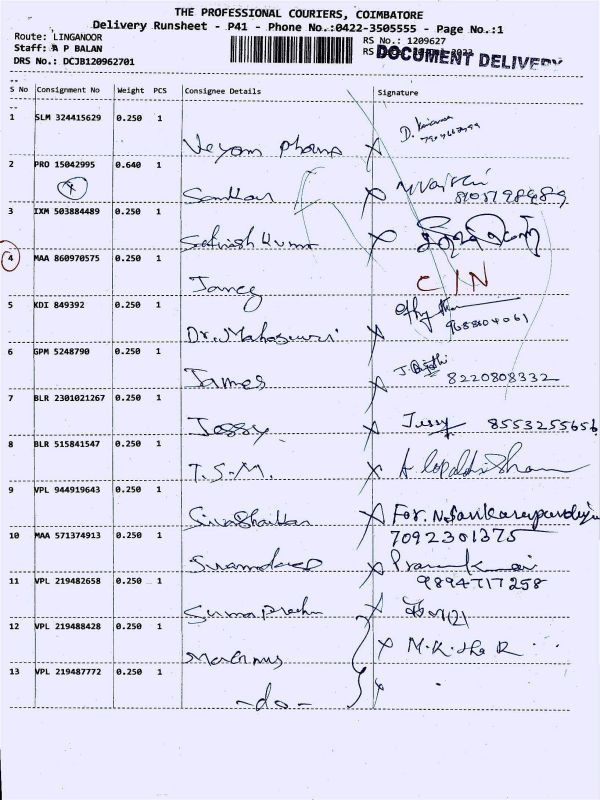 THE PROFESSIONAL COURIERS, COIMBATORE
Delivery Runsheet - P41 - Phone No.:0422-3505555 - Page No.:1
Route: LINGANOOR
RS No.: 1209627
Staff: A P BALAN
RS
DOCUMENT DELIVERY
DRS No.: DCJB120962701
S No Consignment No Weight PCS Consignee Details Signature
1 SLM 324415629 0.250 1
Veyom Pharma
2 PRO 15042995 0.640 1
Sankar
8105798989
3 IXM 503884489 0.250 1
Sathish Kumar
4 MAA 860970575 0.250 1
C/N
Jancy
5 KDI 849392 0.250 1
Dr. Maheswari
9688604061
6 GPM 5248790 0.250 1
James
8220808332
7 BLR 2301021267 0.250 1
Jessy Jessy 8553255656
8 BLR 515841547 0.250 1
T.S.M.
9 VPL 944919643 0.250 1
Sivashankar For. N. Sankarapandiyan
10 MAA 571374913 0.250 1
7092301375
11 VPL 219482658 0.250 1
9894717258
12 VPL 219488428 0.250 1
M.K.
13 VPL 219487772 0.250 1
-do-